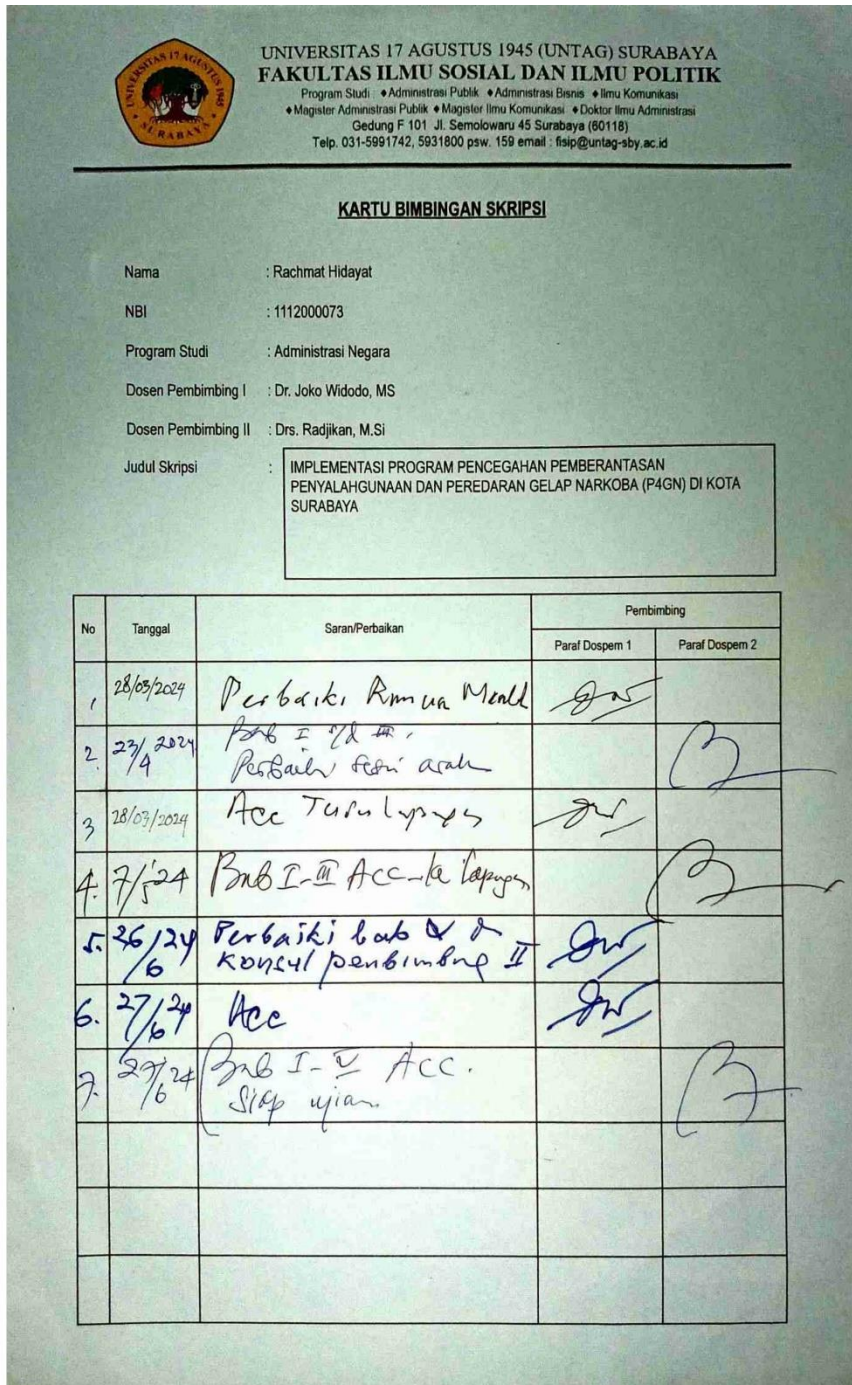 UNIVERSITAS 17 AGUSTUS 1945
SURABAYA
UNIVERSITAS 17 AGUSTUS 1945 (UNTAG) SURABAYA
FAKULTAS ILMU SOSIAL DAN ILMU POLITIK
Program Studi : ♦Administrasi Publik ♦Administrasi Bisnis ♦Ilmu Komunikasi
♦Magister Administrasi Publik ♦Magister Ilmu Komunikasi ♦Doktor Ilmu Administrasi
Gedung F 101 Jl. Semolowaru 45 Surabaya (60118)
Telp. 031-5991742, 5931800 psw. 159 email : fisip@untag-sby.ac.id
KARTU BIMBINGAN SKRIPSI
Nama : Rachmat Hidayat
NBI : 1112000073
Program Studi : Administrasi Negara
Dosen Pembimbing I : Dr. Joko Widodo, MS
Dosen Pembimbing II : Drs. Radjikan, M.Si
Judul Skripsi : IMPLEMENTASI PROGRAM PENCEGAHAN PEMBERANTASAN
PENYALAHGUNAAN DAN PEREDARAN GELAP NARKOBA (P4GN) DI KOTA
SURABAYA
No Tanggal Saran/Perbaikan Pembimbing
Paraf Dospem 1 Paraf Dospem 2
1 28/03/2024 Perbaiki
2. 23/4 2024 Bab I s/d III.
Perbaiki arah
3 28/03/2024 Acc Turun
4. 7/5 '24 Bab I-III ACC ke lapangan
5. 26/6 24 Perbaiki bab
Konsul pembimbing II
6. 27/6 24 Acc
7. 27/6 24 Bab I-V ACC.
Siap ujian